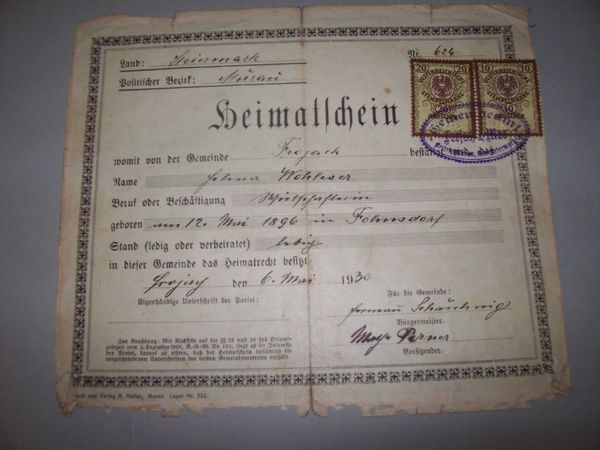 Land: Steiermark
Nr. 624
Politischer Bezirk: Murau
20 20
ÖSTERREICHISCHE
STEMPELMARKE
20
10 10
ÖSTERREICHISCHE
STEMPELMARKE
10
Heimatschein
Gemeindeamt
womit von der Gemeinde Frojach bestätigt wird, daß
Name
Beruf oder Beschäftigung Wirtschafterin
geboren am 12. Mai 1896 in Fohnsdorf
Stand (ledig oder verheiratet) ledig
in dieser Gemeinde das Heimatrecht besitzt
Frojach 6. Mai 1930
Eigenhändige Unterschrift der Partei:
Für die Gemeinde:
Bürgermeister.
Vorsitzender.
Zur Beachtung: Mit Rücksicht auf die
gesetzes vom 5. Dezember R.-G.-Bl. Nr. liegt es im Interesse
der Partei, darauf zu achten, daß der Heimatschein tatsächlich die
vorgeschriebenen Unterschriften der beiden Gemeindevertreter enthält.
und Verlag A. Haller, Murau Lager Nr. 222.